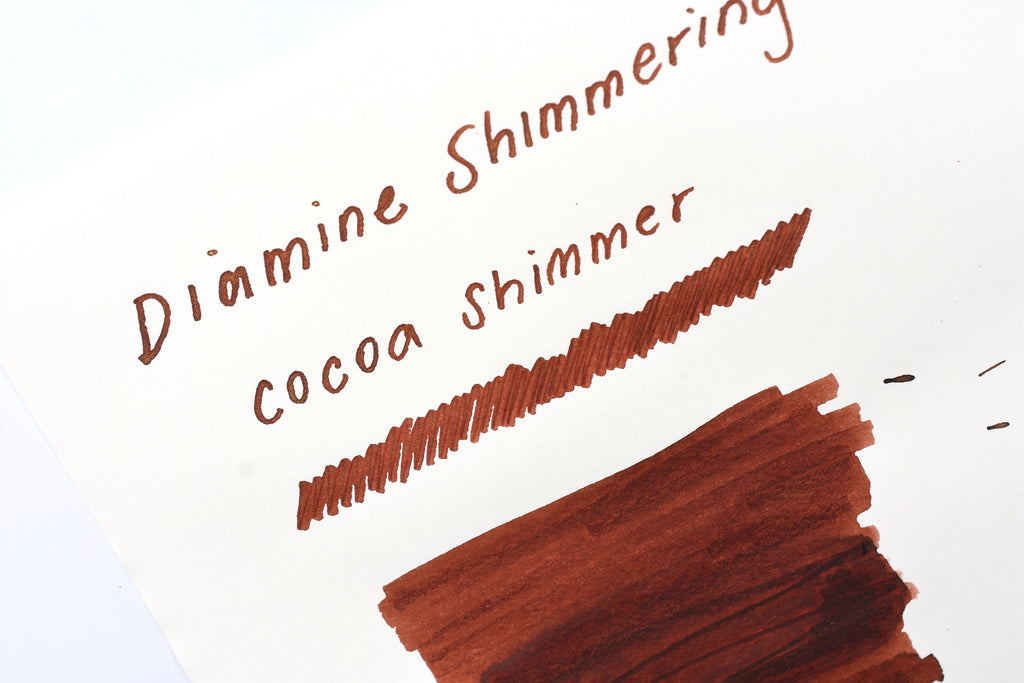 Diamine Shimmering
cocoa shimmer